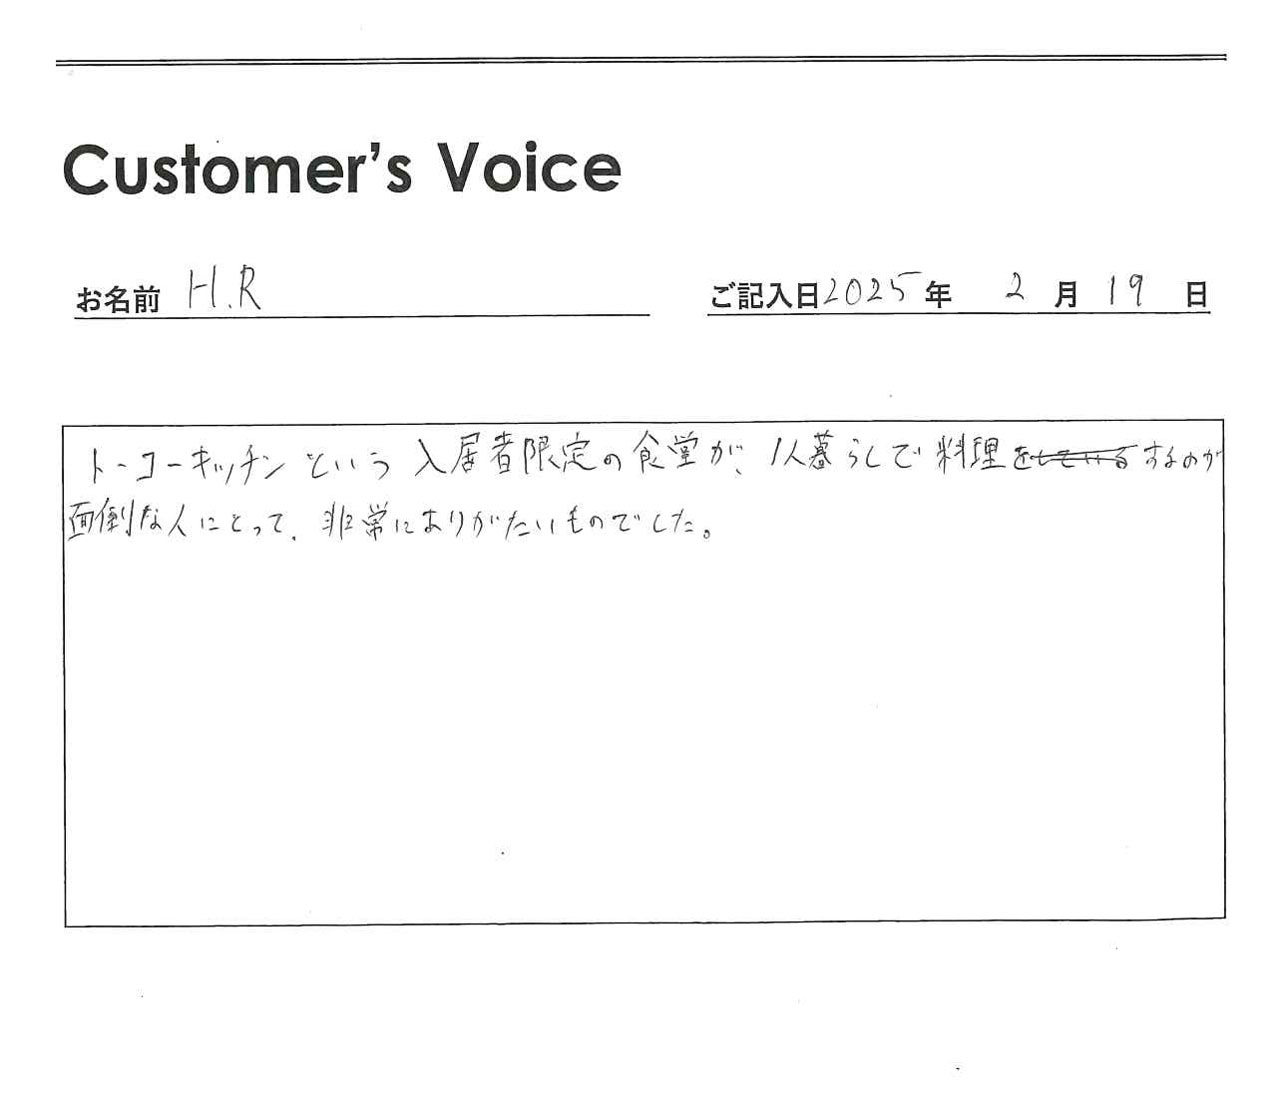 Customer's Voice
お名前 H.R
ご記入日2025年 2月19日
トーコーキッチンという入居者限定の食堂が、1人暮らしで料理をしているするのが
面倒な人にとって、非常にありがたいものでした。